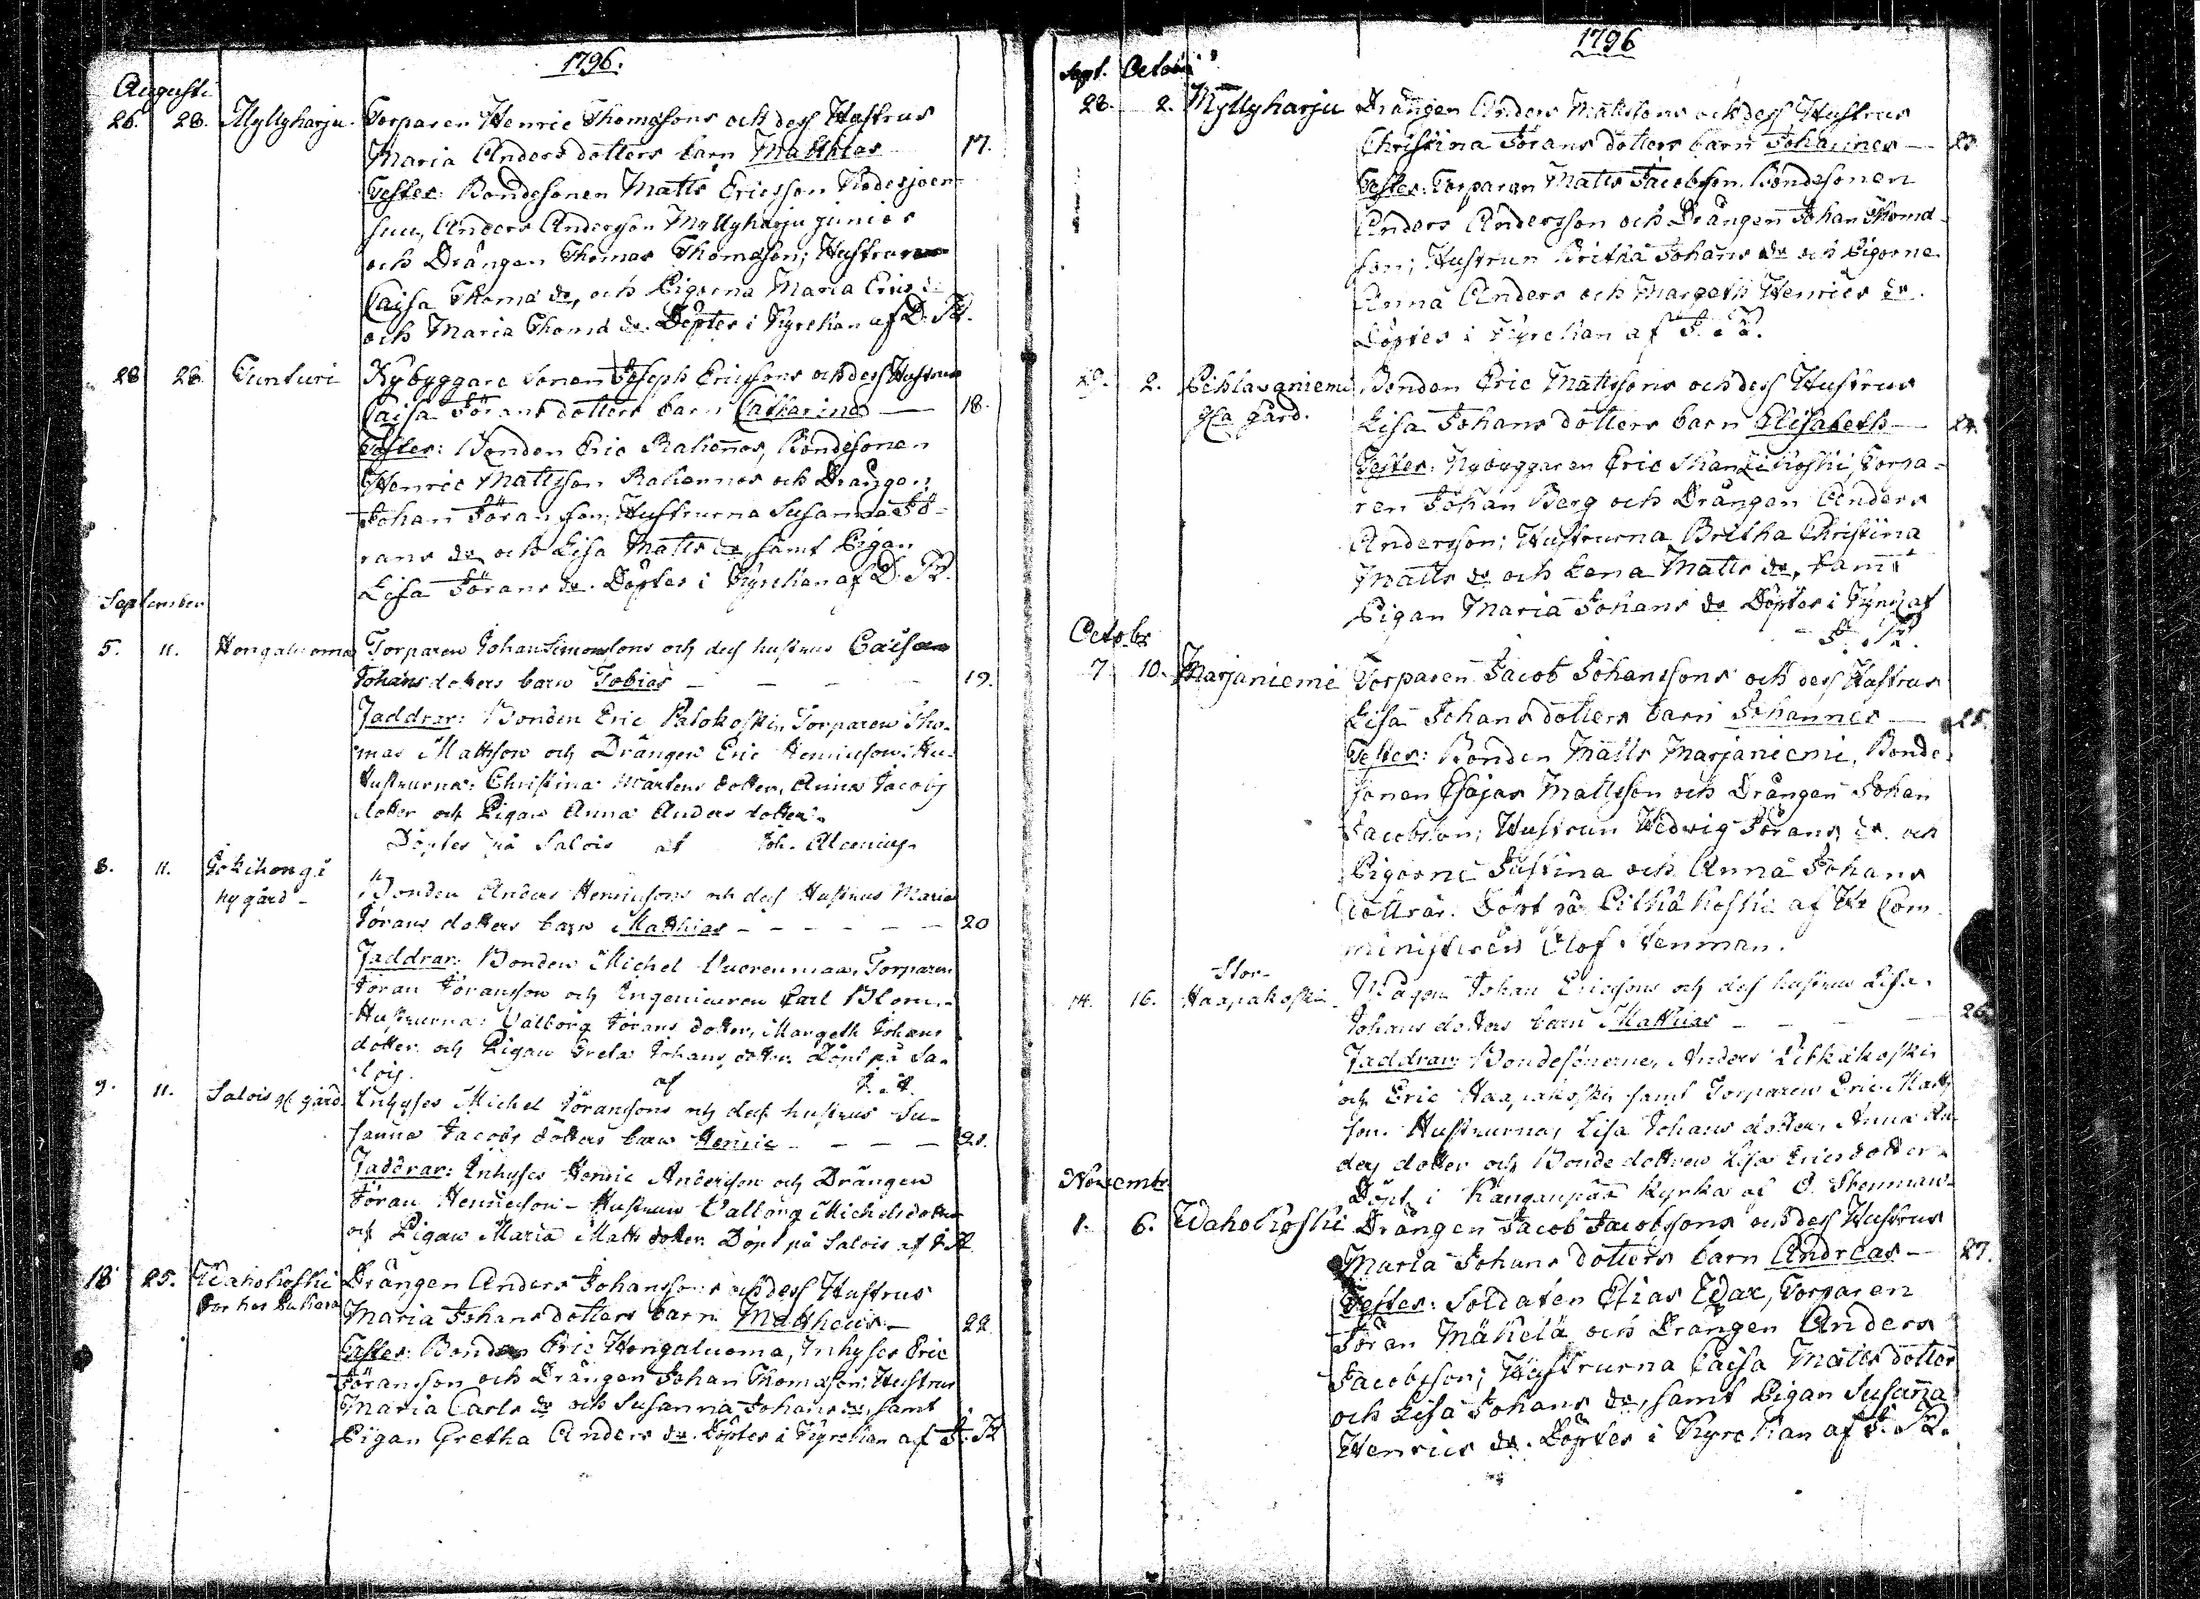 1796.
Augusti
26. 28. Myllyharju. Torparen Henric Thomassons och dess Hustrus
Maria Anders dotters barn Matthias 17.
Testes: Bondesonen Matts Ericsson
Anders Andersson Myllyharju junior
och Drängen Thomas Thomasson; Hustrun
Caisa Thomæ dr, och Pigorna Maria Erics dr
och Maria Thomæ dr. Döptes i Kyrckan af D. K.
28 28. Tunturi Nybyggare Sonen Joseph Ericssons och dess Hustrus
Caisa Jörans dotters barn Catharina — 18.
Testes: Bonden Eric Rahennos, Bondesonen
Henric Mattsson Rahennos och Drängen
Johan Göransson; Hustrurna Susanna Jö-
rans dr och Lisa Matts dr, samt Pigan
Lisa Jörans dr. Döptes i Kyrckan af D. K.
September
5. 11. Hongaluoma Torparen Johan Simonssons och dess hustrus Caisa
Johans dotters barn Tobias — — — — 19.
Faddrar: Bonden Eric Palokoski, Torparen Tho-
mas Mattsson och Drängen Eric Henricsson. Hu-
Hustrurna: Christina Mårtens dotter, Anna Jacobs
dotter och Pigan Anna Anders dotter.
Döptes på Salois af Joh. Alcenius.
8. 11. Jokihongi Bonden Anders Henricsons och dess Hustrus Maria
nygård Jörans dotters barn Matthias — — — — — 20
Faddrar: Bonden Michel Vuorenmaa, Torparen
Jöran Jöransson och Ingenieuren Carl Blom.
Hustrurna: Valborg Jörans dotter, Margeth Johans
dotter och Pigan Greta Johans dotter. Döpt på Sa-
lois. af J. A.
9. 11. Salois gl gård. Inhyses Michel Jöranssons och dess hustrus Su-
sanna Jacobs dotters barn Henric — — — — 21.
Faddrar: Inhyses Henric Andersson och Drängen
Jöran Henricsson. Hustrun Valborg Michelsdotter
och Pigan Maria Matts dotter. Döpt på Salois af J. A
18 25. Wahokoski Drängen Anders Johanssons och dess Hustrus
Maria Johans dotters barn Mattheus — 22
Testes: Bonden Eric Hongaluoma, Inhyses Eric
Jöransson och Drängen Johan Thomasson; Hustrun
Maria Carls dr och Susanna Johans dr, samt
Pigan Gretha Anders dr. Döptes i Kyrckan af J. K
1796
Sept. Octobr
28. 2. Myllyharju Drängen Anders Mattssons och dess Hustrus
Christina Jörans dotters barn Johannes — 23
Testes: Torparen Matts Jacobsson, Bondesonen
Anders Andersson och Drängen Johan Thomas-
son; Hustrun Britha Johans dr och Pigorne
Anna Anders och Margeth Henrics dr.
Döptes i Kyrckan af J. K.
29. 2. Pihlavaniemi Bonden Eric Mattssons och dess Hustrus
gla gård. Lisa Johans dotters barn Elisabeth — 24.
Testes: Nybyggaren Eric Torpa-
ren Johan Berg och Drängen Anders
Andersson; Hustrurna Britha Christina
Matts dr och Lena Matts dr, samt
Pigan Maria Johans dr Döptes i Kyrck af
J. K.
Octobr
7 10. Marjaniemi Torparen Jacob Johanssons och dess Hustrus
Lisa Johans dotters barn Johannes — 25.
Testes: Bonden Matts Marjaniemi, Bonde-
sonen Esajas Mattsson och Drängen Johan
Jacobsson; Hustrun Hedvig Jörans dr. och
Pigorne Justina och Anna Johans
döttrar. Döpt på Pitkäkoski af Hr Com-
ministern Olof Stenman.
Stor-
14. 16. Haapakoski Mågen Johan Ericssons och dess hustrus Lisa
Johans dotters barn Matthias — — — 26
Faddrar: Bondesönerne, Anders Pitkäkoski
och Eric Haapakoski samt Torparen Eric Matts-
son. Hustrurna, Lisa Johans dotter, Anna An-
ders dotter och Bonde dottren Lisa Ericsdotter.
Döpt i Kanganpää Kyrka af O. Stenman.
Novembr
1. 6. Wahokoski Drängen Jacob Jacobssons och dess Hustrus
Maria Johans dotters barn Andreas — 27.
Testes: Soldaten Elias Wax, Torparen
Jöran Mäkelä och Drängen Anders
Jacobsson; Hustrurna Caisa Matts dotter
och Lisa Johans dr, samt Pigan Susanna
Henrics dr. Döptes i Kyrckan af J. K.